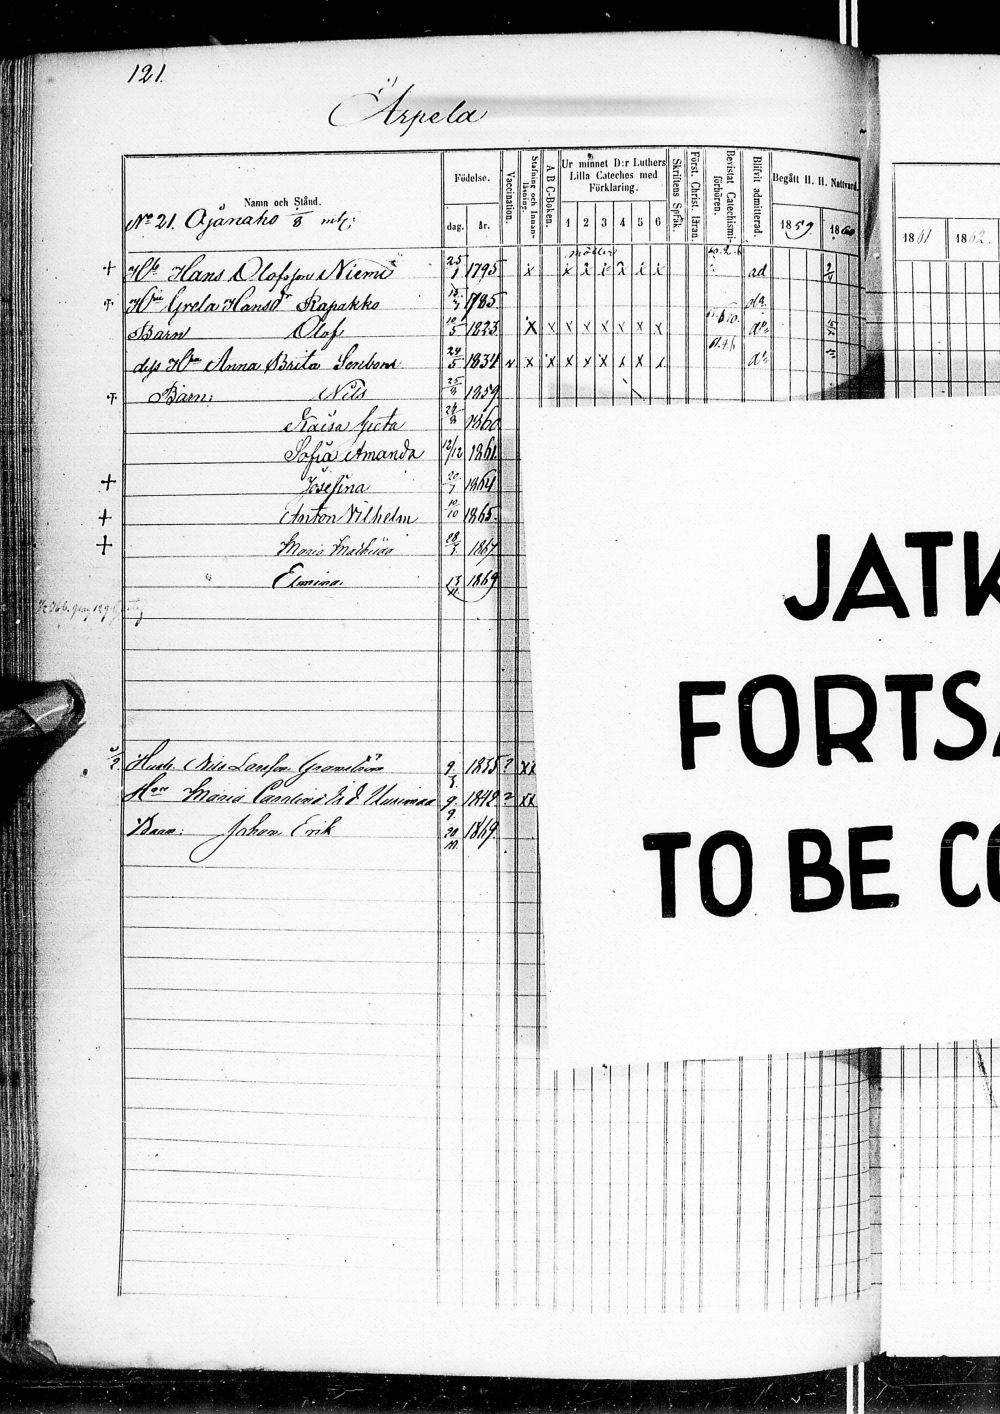 121.
Ärpelä
Namn och Stånd.
Födelse.
dag. år.
Vaccination.
Stafning och Innan-läsning.
A B C-Boken.
Ur minnet D:r Luthers
Lilla Cateches med
Förklaring.
1 2 3 4 5 6
Skriftens Språk.
Först. Christ. läran.
Bevistat Catechismi-förhören.
Blifvit admitterad.
Begått H. H. Nattvard.
1859. 1860
1861 1862
No 21. Ojänaho 1/8 mtl:
+ Hb Hans Olofsson Niemi 25/1 1795 x x x x x x x ad
+ Hu Greta Hansdr Rapakko 1785
Barn Olof 10/5 1823 x x x x x x x x
Anna Brita 24/5 1834 v x x x x x x x x
+ Barn: Nils 25/8 1859
Kaisa Greta 1860
Sofia Amanda 12/12 1861
+ Josefina 20/7 1864
+ Anton Vilhelm 10/10 1865
+ Maria Mathilda 1867
Elmina 13/11 1869
Nils 9/3 1835 ? x x
Maria Carolina 9/9 1842 ? x x
Barn: Johan Erik 20/11 1869
JATK
FORTSÄ
TO BE CO